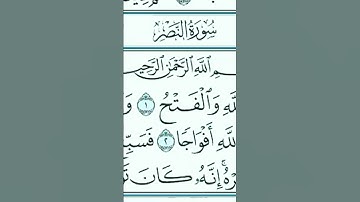 سُورَةُ النَّصْرِ
ـمِ اللَّهِ الرَّحْمَٰنِ الرَّحِيـ
ـلَّهِ وَالْفَتْحُ ١ وَ
ـلَّهِ أَفْوَاجًا ٢ فَسَبِّـ
ـرْهُ إِنَّهُ كَانَ تَـ